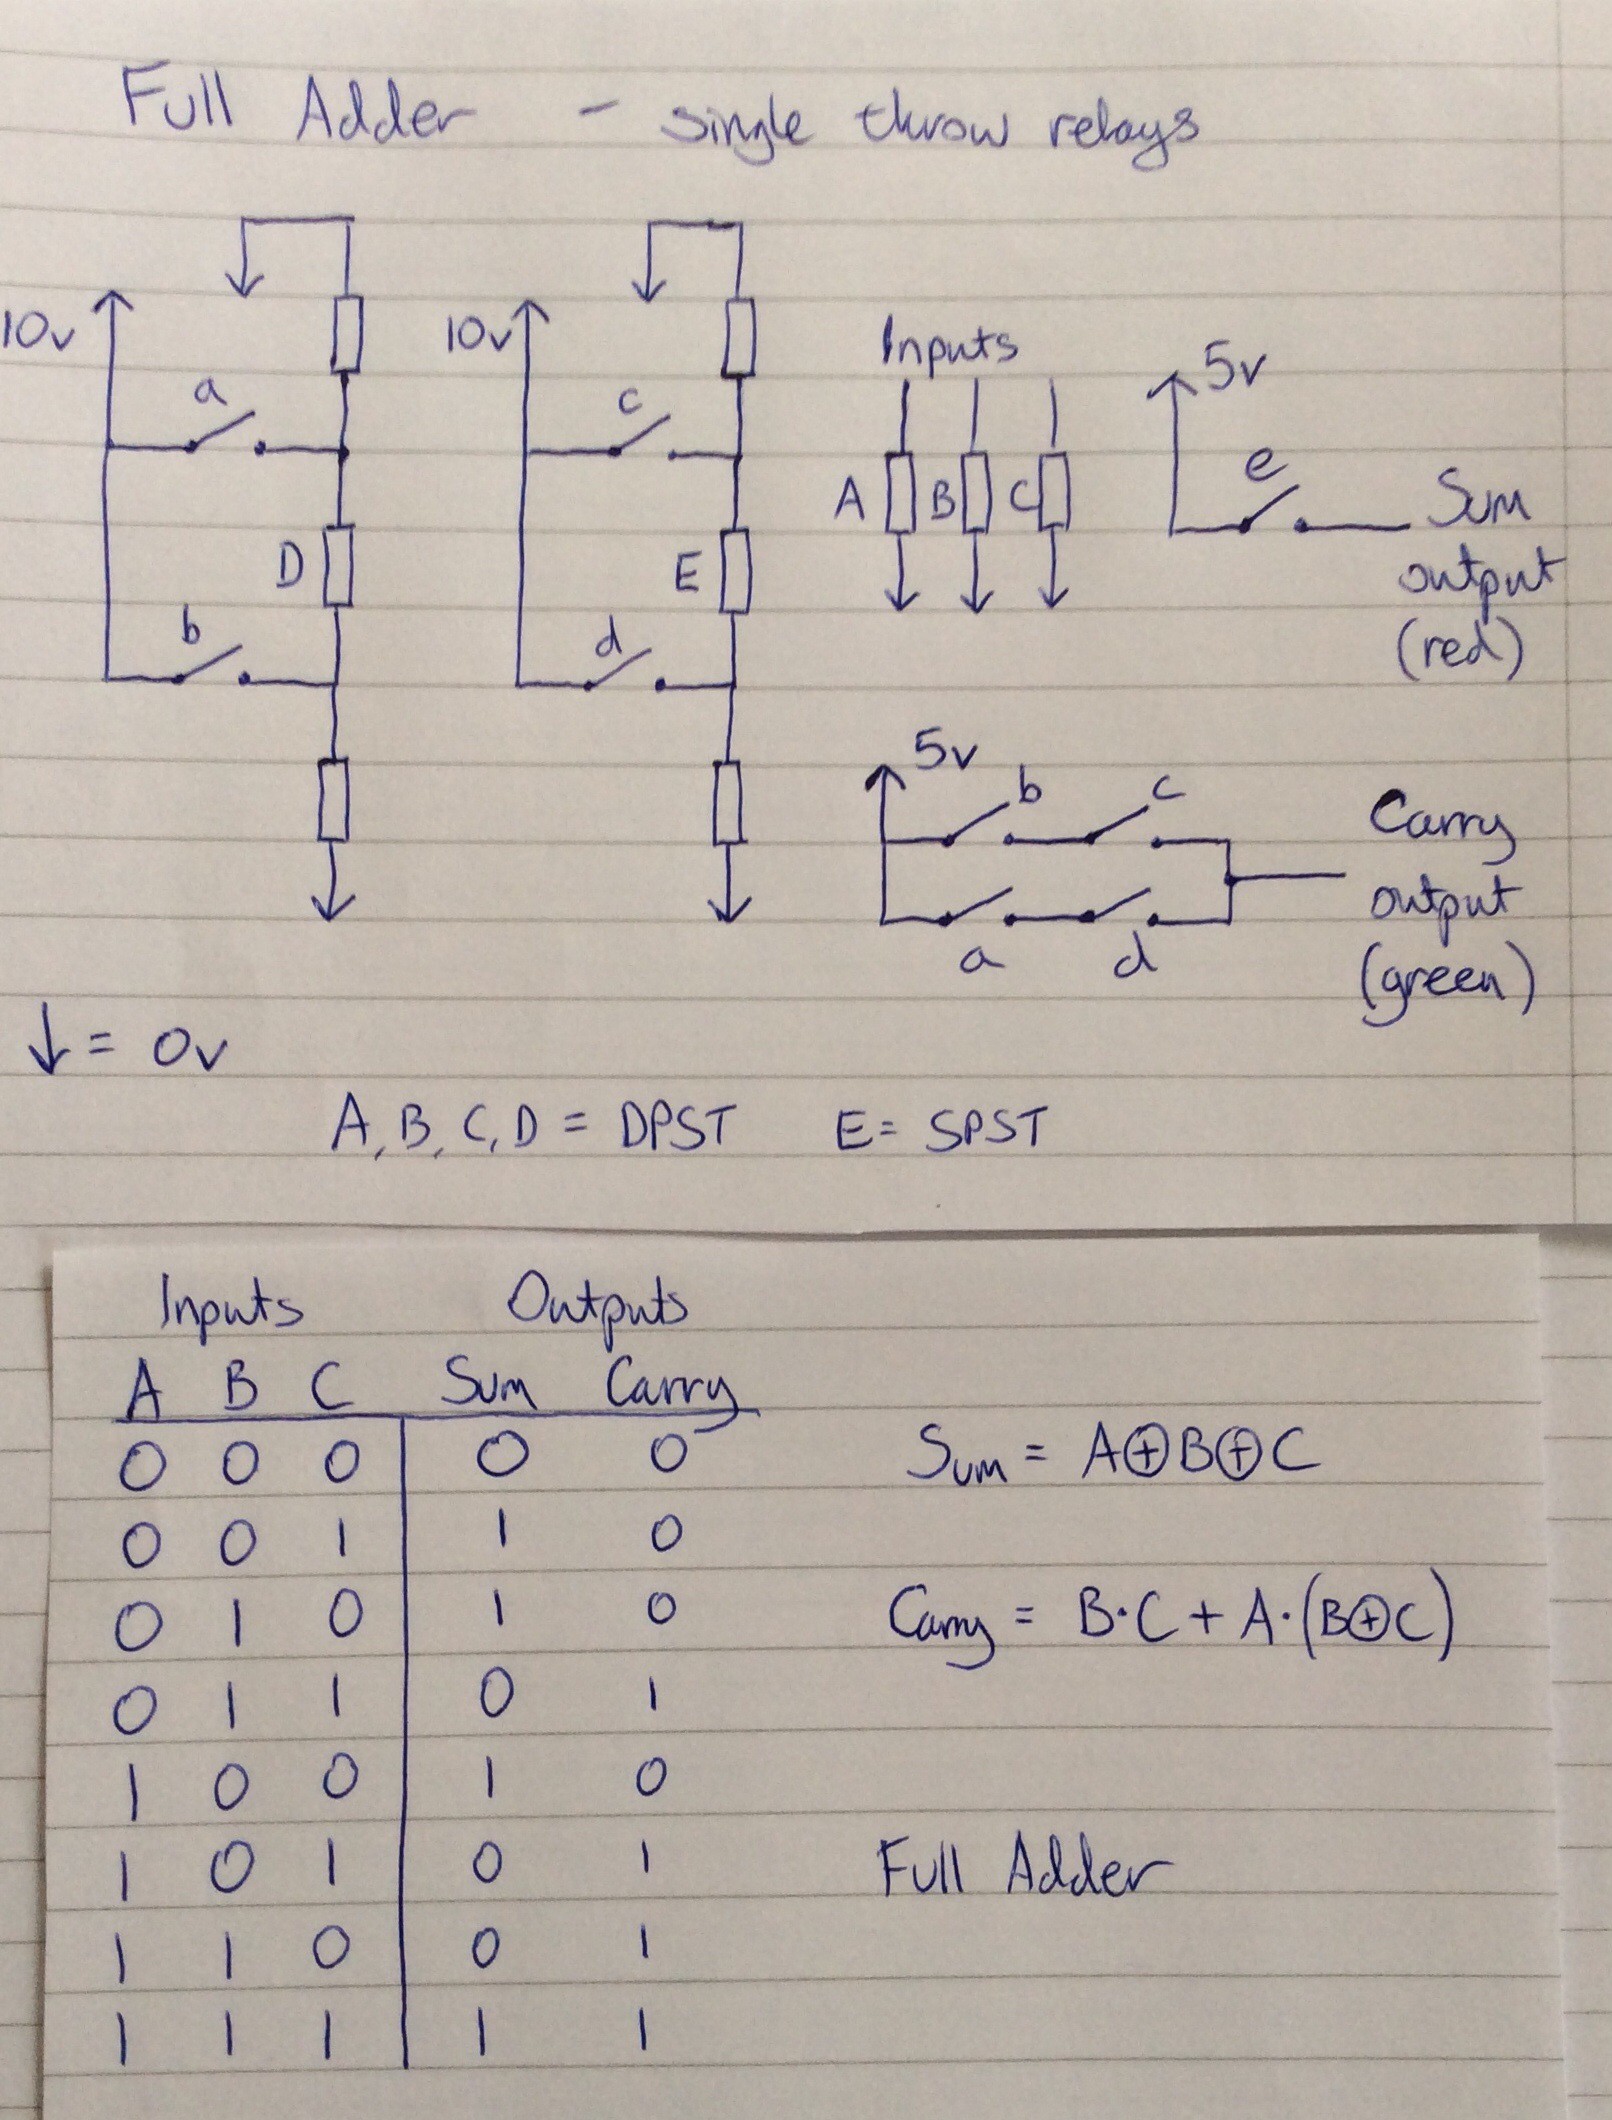 Full Adder - single throw relays
10v
10v
Inputs
5v
a
c
A
B
C
e
Sum
output
(red)
D
E
b
d
5v
b
c
Carry
output
(green)
a
d
↓ = 0v
A, B, C, D = DPST E = SPST
Inputs Outputs
A B C Sum Carry
0 0 0 0 0
0 0 1 1 0
0 1 0 1 0
0 1 1 0 1
1 0 0 1 0
1 0 1 0 1
1 1 0 0 1
1 1 1 1 1
Sum = A⊕B⊕C
Carry = B·C + A·(B⊕C)
Full Adder